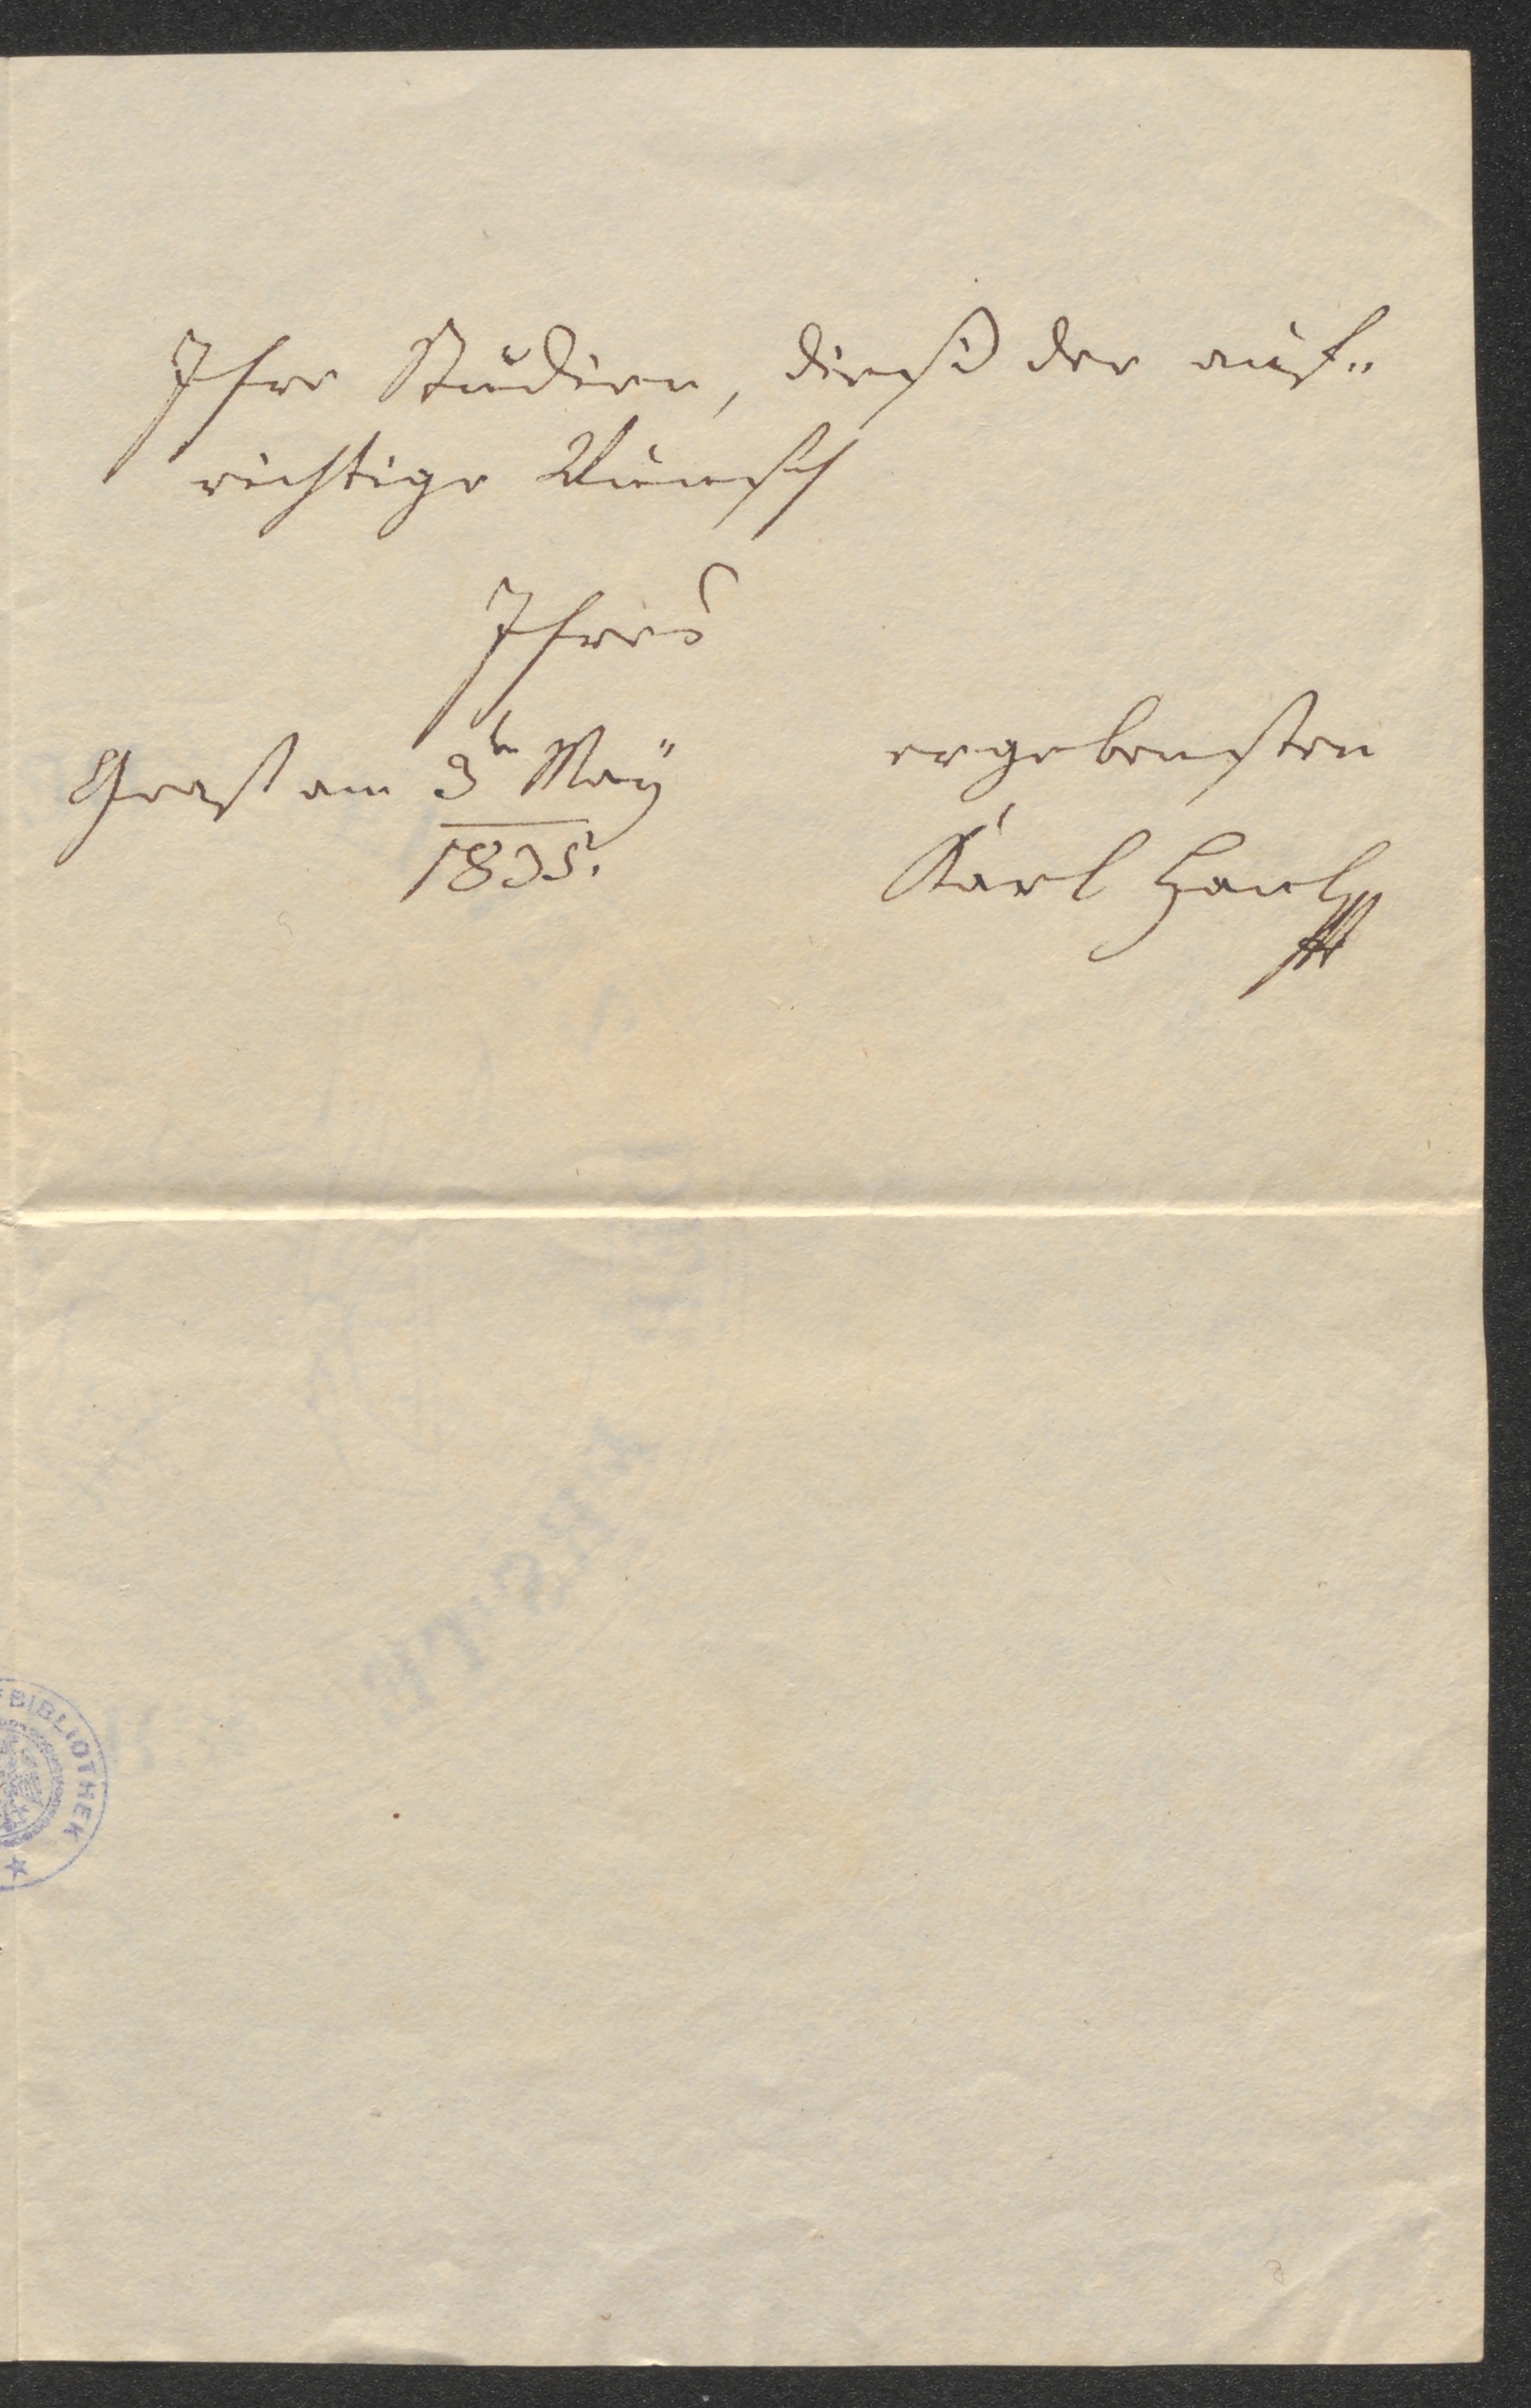 Ihre Studien, dieß der auf„
richtige Wunsch
Ihres
Gratz am 3ten May
1835.
ergebensten
Karl
BIBLIOTHEK